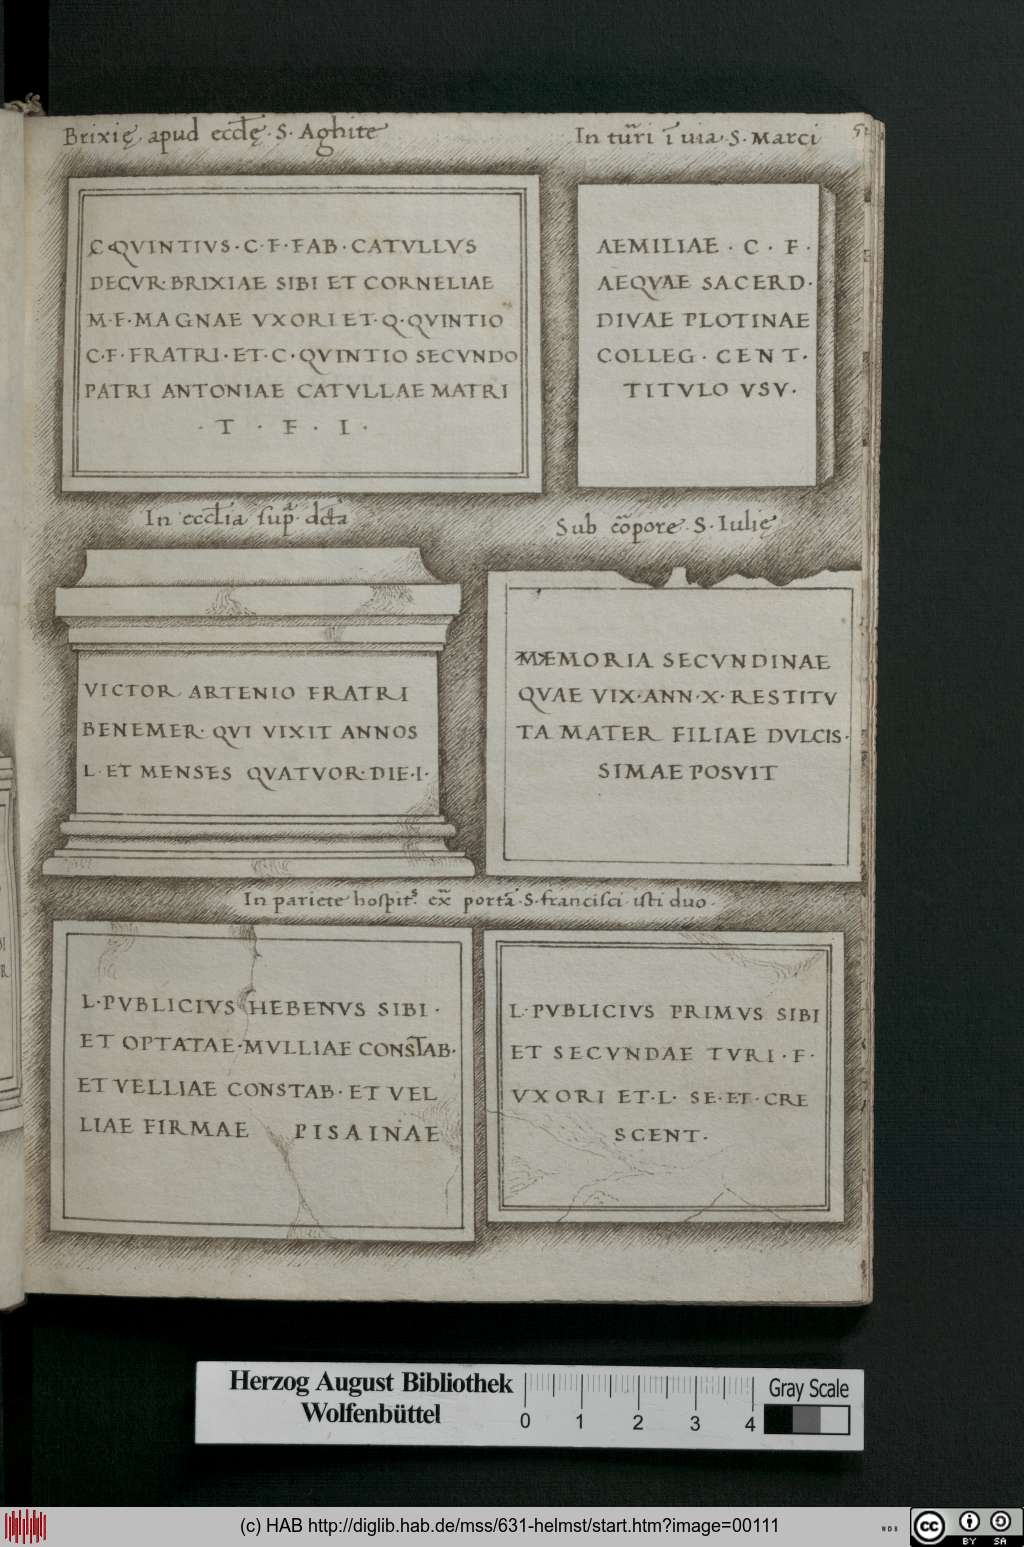 Brixię apud eccl̄ę S. Aghite
C QVINTIVS·C·F·FAB·CATVLLVS
DECVR·BRIXIAE SIBI ET CORNELIAE
M·F·MAGNAE VXORI ET·Q·QVINTIO
C·F·FRATRI·ET·C·QVINTIO SECVNDO
PATRI ANTONIAE CATVLLAE MATRI
·T·F·I·
In tūri ī uia S. Marci
AEMILIAE·C·F·
AEQVAE SACERD·
DIVAE PLOTINAE
COLLEG·CENT·
TITVLO VSV·
In eccl̄ia sup̄ dct̄a
VICTOR ARTENIO FRATRI
BENEMER·QVI VIXIT ANNOS
L·ET MENSES QVATVOR·DIE·I·
Sub cōpore S. Iulię
MEMORIA SECVNDINAE
QVAE VIX·ANN·X·RESTITV
TA MATER FILIAE DVLCIS·
SIMAE POSVIT
In pariete hospit. ex̄ portā S. francisci isti duo.
L·PVBLICIVS HEBENVS SIBI·
ET OPTATAE·MVLLIAE CONSTAB·
ET VELLIAE CONSTAB·ET VEL
LIAE FIRMAE PISAINAE
L·PVBLICIVS PRIMVS SIBI
ET SECVNDAE TVRI·F·
VXORI ET·L·SE·ET·CRE
SCENT·
Herzog August Bibliothek
Wolfenbüttel
0 1 2 3 4
Gray Scale
(c) HAB http://diglib.hab.de/mss/631-helmst/start.htm?image=00111
WDB
cc
BY SA